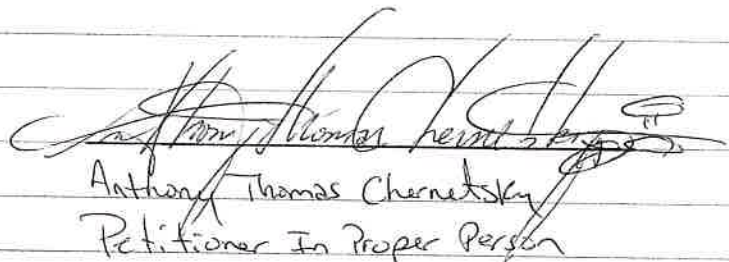 Anthony Thomas Chernetsky
Anthony Thomas Chernetsky
Petitioner In Proper Person